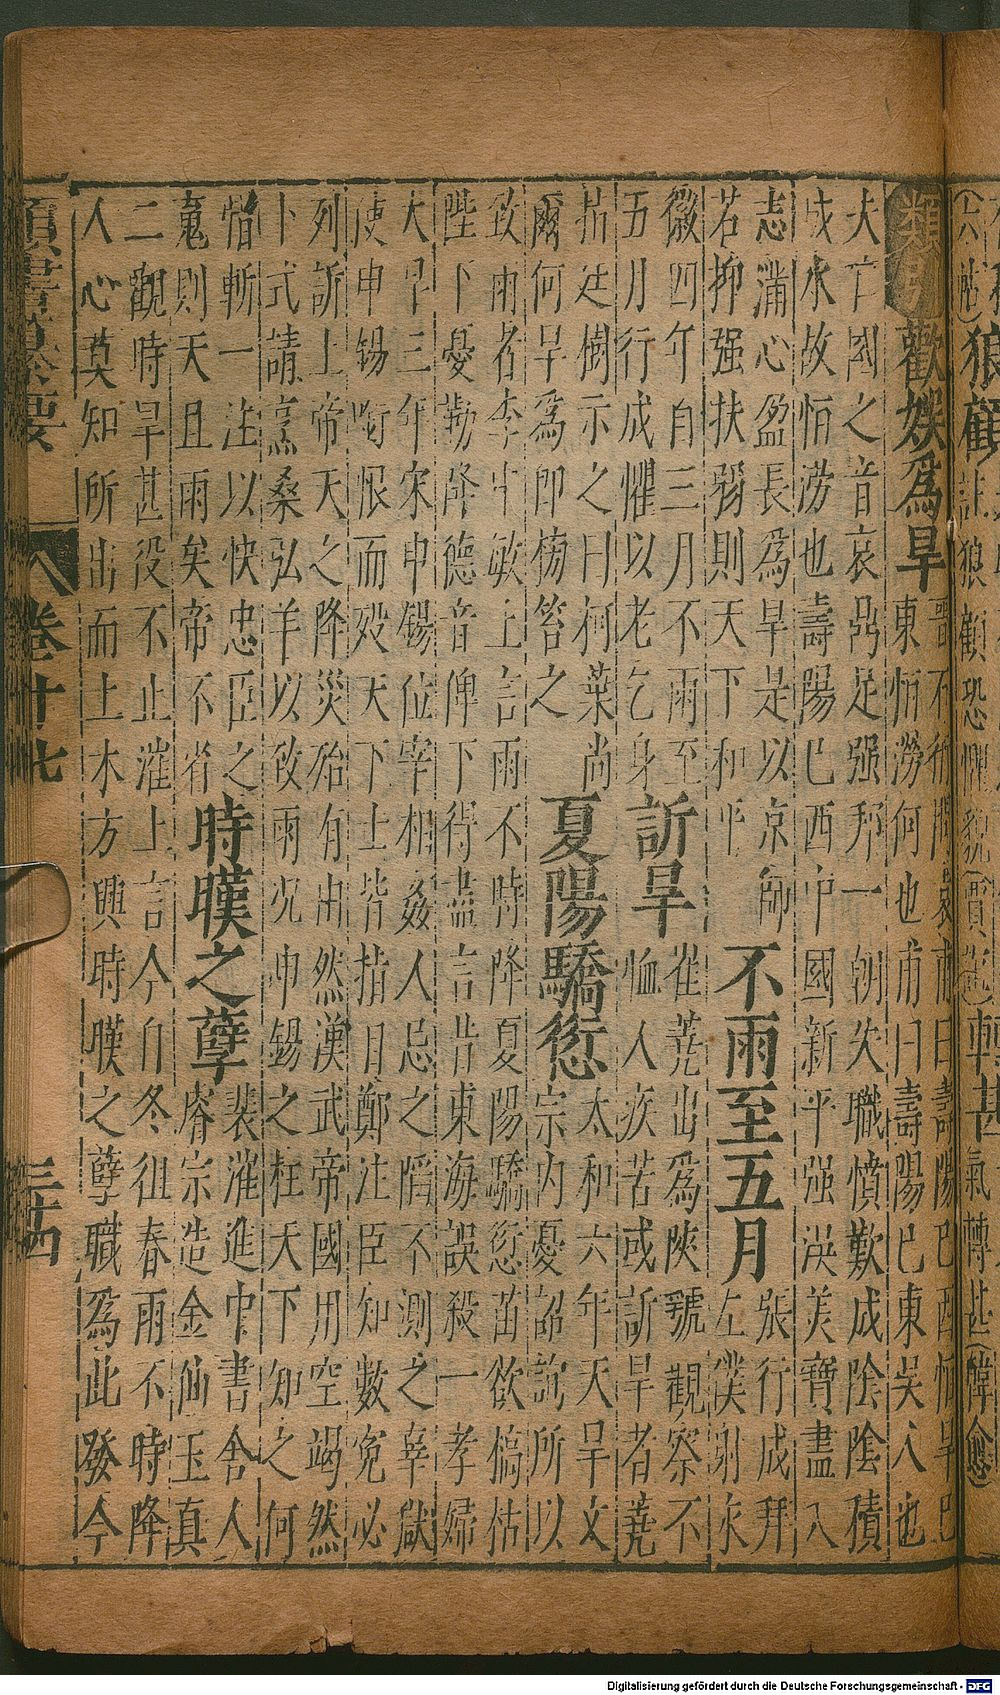 (六帖)狼顧 註狼顧恐懼貌(賈誼)轉甚氣轉甚(韓愈)
類引 歡娛爲旱
不 問 甫曰壽陽巳酉恒旱巳
東恒澇何也甫曰壽陽巳東吳人也
夫亡國之音哀咼足强邦一朝失職憤歎成陰陰積
成水故恒澇也壽陽巳西中國新平强漢美寶盡入
志滿心盈長為旱是以京師
若抑强扶弱則天下和平
不雨至五月
張行成拜
左僕射永
徽四年自三月不雨至
五月行成懼以老乞身
訴旱
崔蕘出為陝虢觀察不
恤人疾苦或訴旱者蕘
指廷樹示之曰柯葉尚
爾何旱為即榜笞之
夏陽驕愆
太和六年天旱文
宗内憂詔詢所以
致雨者李中敏上言雨不時降夏陽驕愆苗欲槁枯
陛下憂勤降德音俾下得盡言昔東海誤殺一孝婦
大旱三年宋申錫位宰相姦人忌之陷不測之辜獄
使申錫銜恨而歿天下士皆指目鄭注臣知數冤必
列訴上帝天之降災殆有由然漢武帝國用空竭然
卜式請烹桑弘羊以致雨况申錫之枉天下知之何
惜斬一注以快忠臣之
蒐則天且雨矣帝不省
時暵之孽
裴漼進中書舍人
睿宗造金仙玉真
二觀時旱甚役不止漼上言今自冬徂春雨不時降
人心莫知所出而土木方興時暵之孽職為此發今
類書纂要 卷廿七 三十四
Digitalisierung gefördert durch die Deutsche Forschungsgemeinschaft - DFG